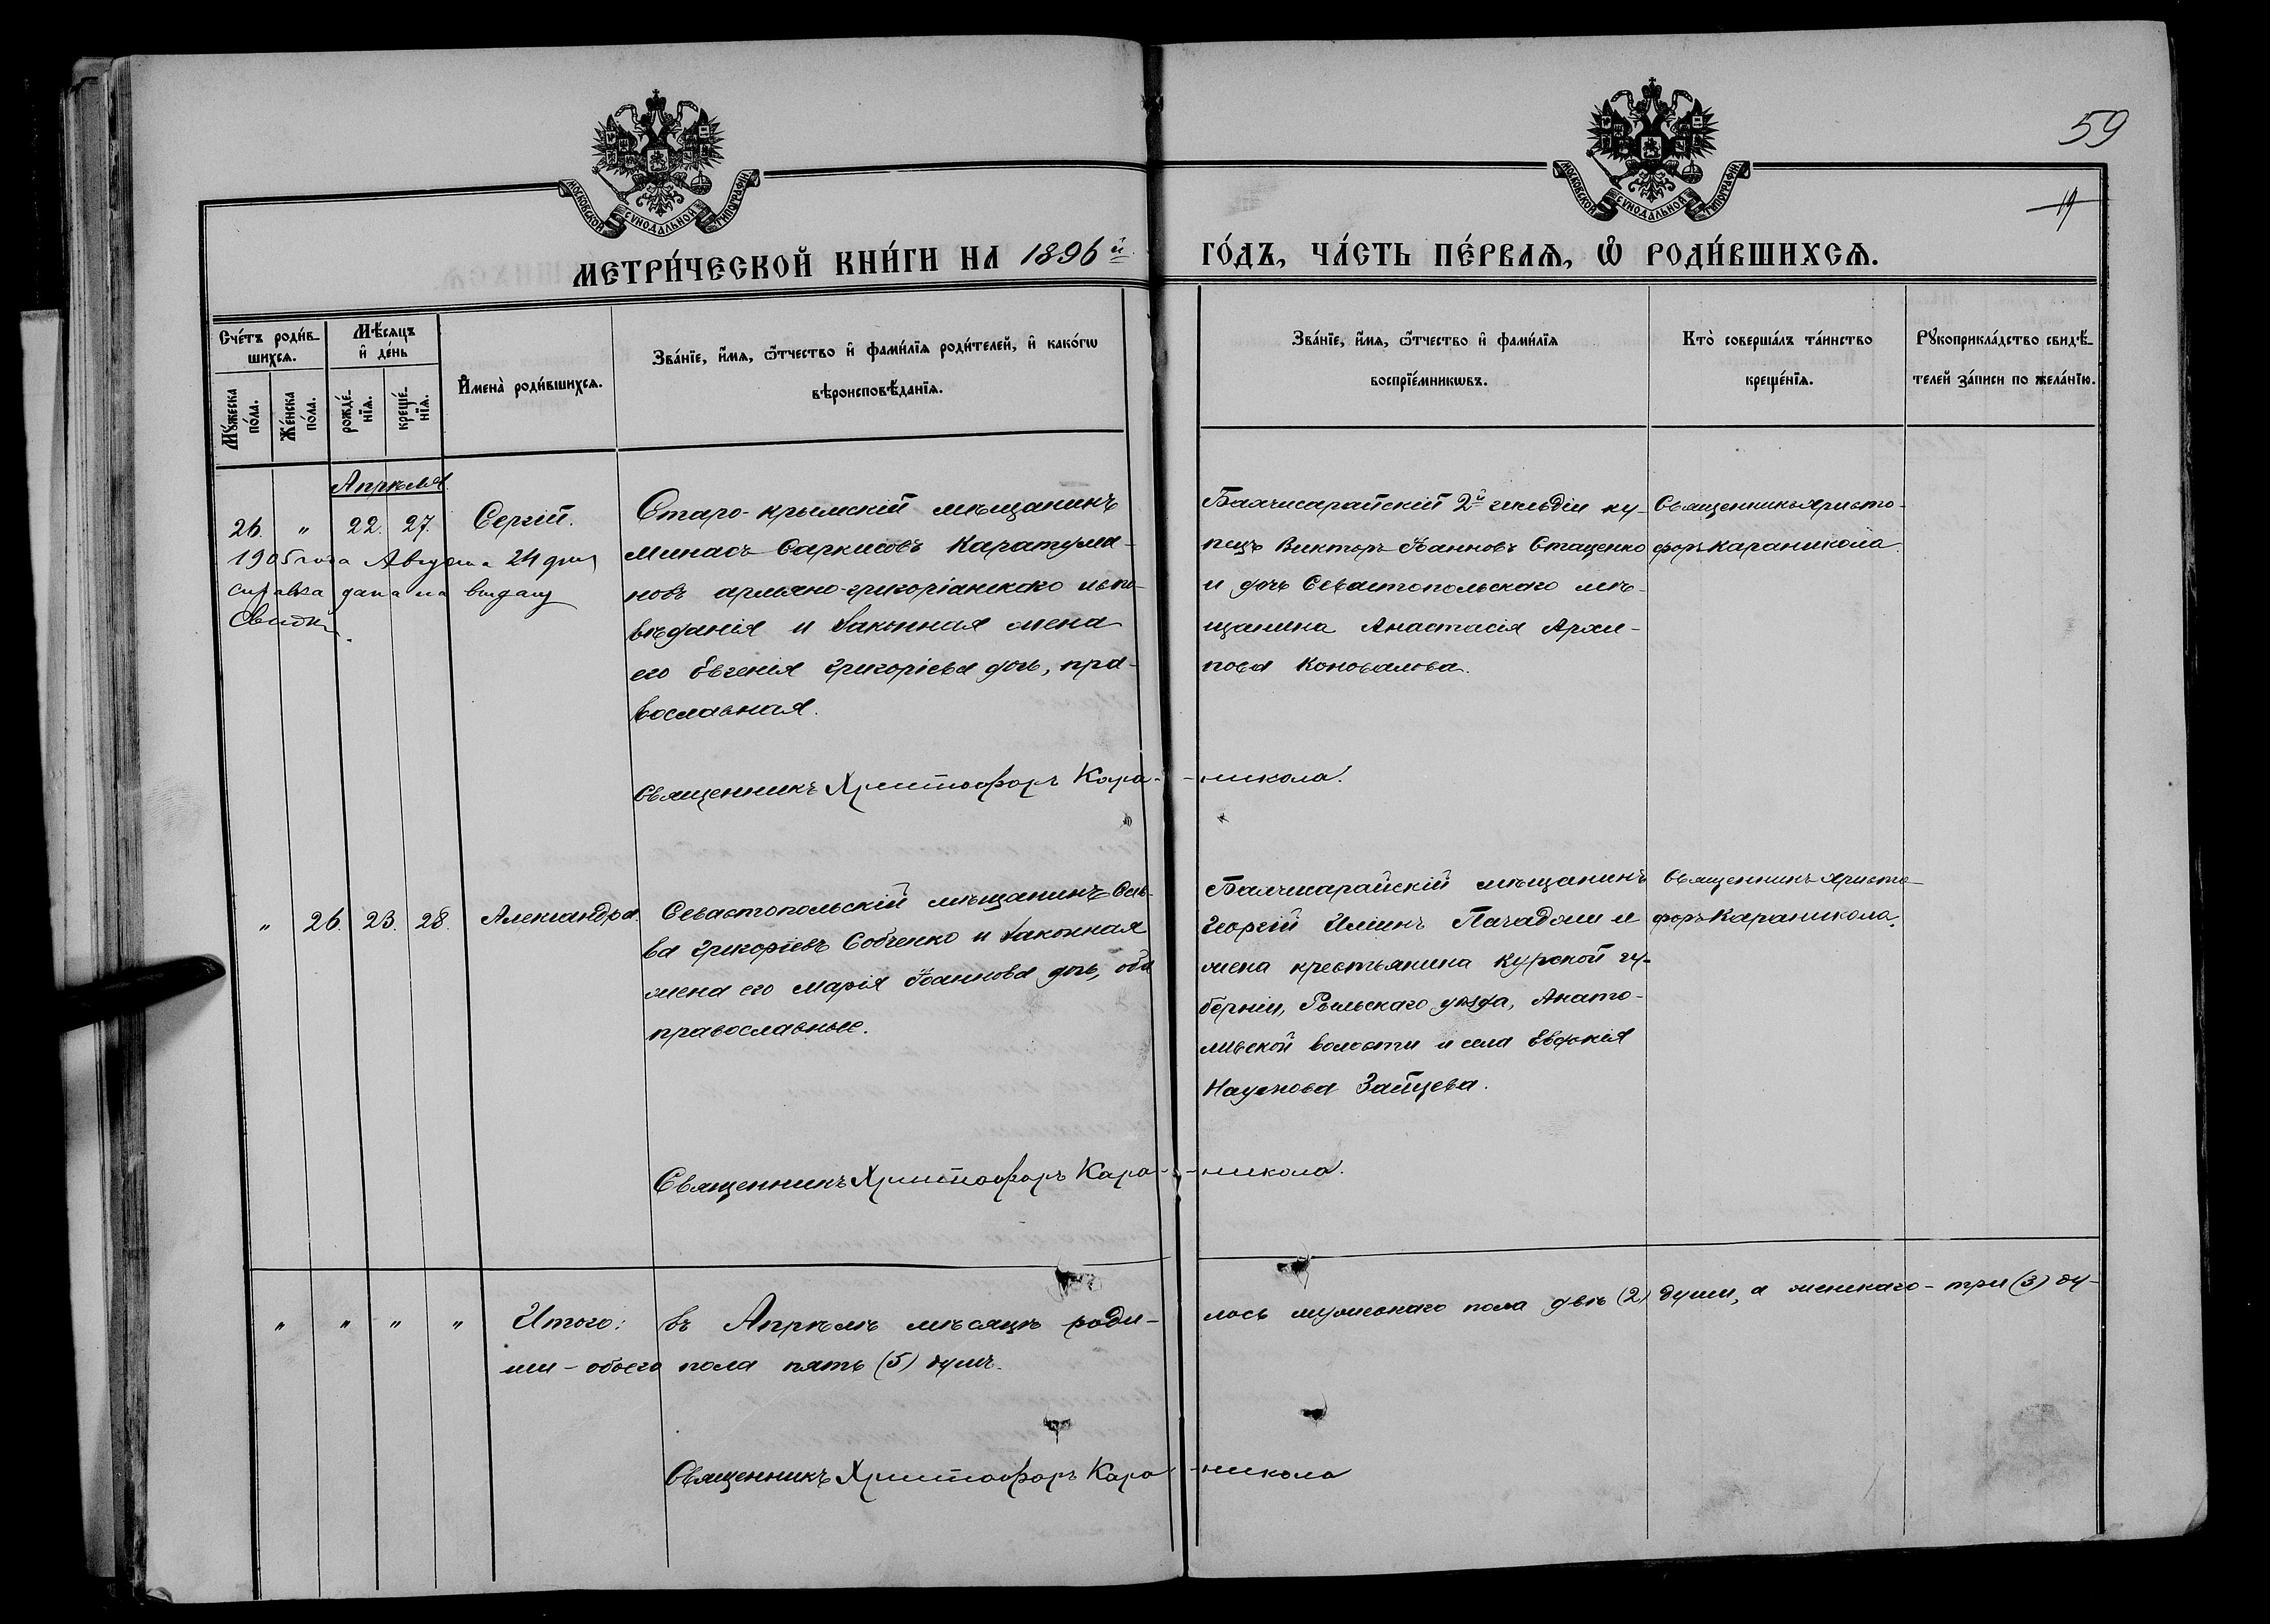 59
19
МОСКОВСКОЙ СѴНОДАЛЬНОЙ ТИПОГРАФІИ
МОСКОВСКОЙ СѴНОДАЛЬНОЙ ТИПОГРАФІИ
МЕТРИ́ЧЕСКОЙ КНИ́ГИ НА 1896й ГО́ДЪ, ЧА́СТЬ ПЕ́РВАѦ, Ѡ РОДИ́ВШИХСѦ.
Сче́тъ роди́в-
шихсѧ.
Мꙋ́жеска по́ла.
Же́нска по́ла.
Мѣ́сѧцъ
и де́нь
рожде́-нїѧ.
креще́-нїѧ.
Имена̀ роди́вшихсѧ.
Зва́нїе, и́мѧ, ѻ́тчество и фами́лїѧ роди́телей, и како́гѡ
вѣроисповѣ́данїѧ.
Зва́нїе, и́мѧ, ѻ́тчество и фами́лїѧ
воспрїе́мникѡвъ.
Кто̀ соверша́лъ та́инство
креще́нїѧ.
Рꙋкоприкла́дство свидѣ́-
телей за́писи по жела́нїю.
Апрѣля
26. " 22. 27. Сергій.
1905 года Августа 24 дня
справка дана на выдачу
Старо-крымскій мѣщанинъ
Минасъ Саркисовъ Каратума-
новъ армяно-григоріанскаго испо-
вѣданія и законная жена
его Евгенія Григоріева дочь, пра-
вославная.
Бахчисарайскій 2й гильдіи ку-
пецъ Викторъ Іоанновъ Стаценко
и дочь Севастопольскаго мѣ-
щанина Анастасія Архи-
пова Коновалова.
Священникъ Христо-
форъ Караникола.
Священникъ Христофоръ Кара-никола.
" 26. 23. 28. Александра.
Севастопольскій мѣщанинъ Сав-
ва Григоріевъ Собченко и законная
жена его Марія Іоаннова дочь, оба
православные.
Бахчисарайскій мѣщанинъ
Георгій Ильинъ Пачаджи и
жена крестьянина Курской гу-
берніи, Рыльскаго уѣзда, Анато-
льевской волости и села Евдокія
Наумова Зайцева.
Священникъ Христо-
форъ Караникола.
Священникъ Христофоръ Кара-никола.
" " " " Итого: въ Апрѣлѣ мѣсяцѣ роди-лось мужескаго пола двѣ (2) души, а женскаго - три (3) ду-
ши - обоего пола пять (5) душъ.
Священникъ Христофоръ Кара-никола